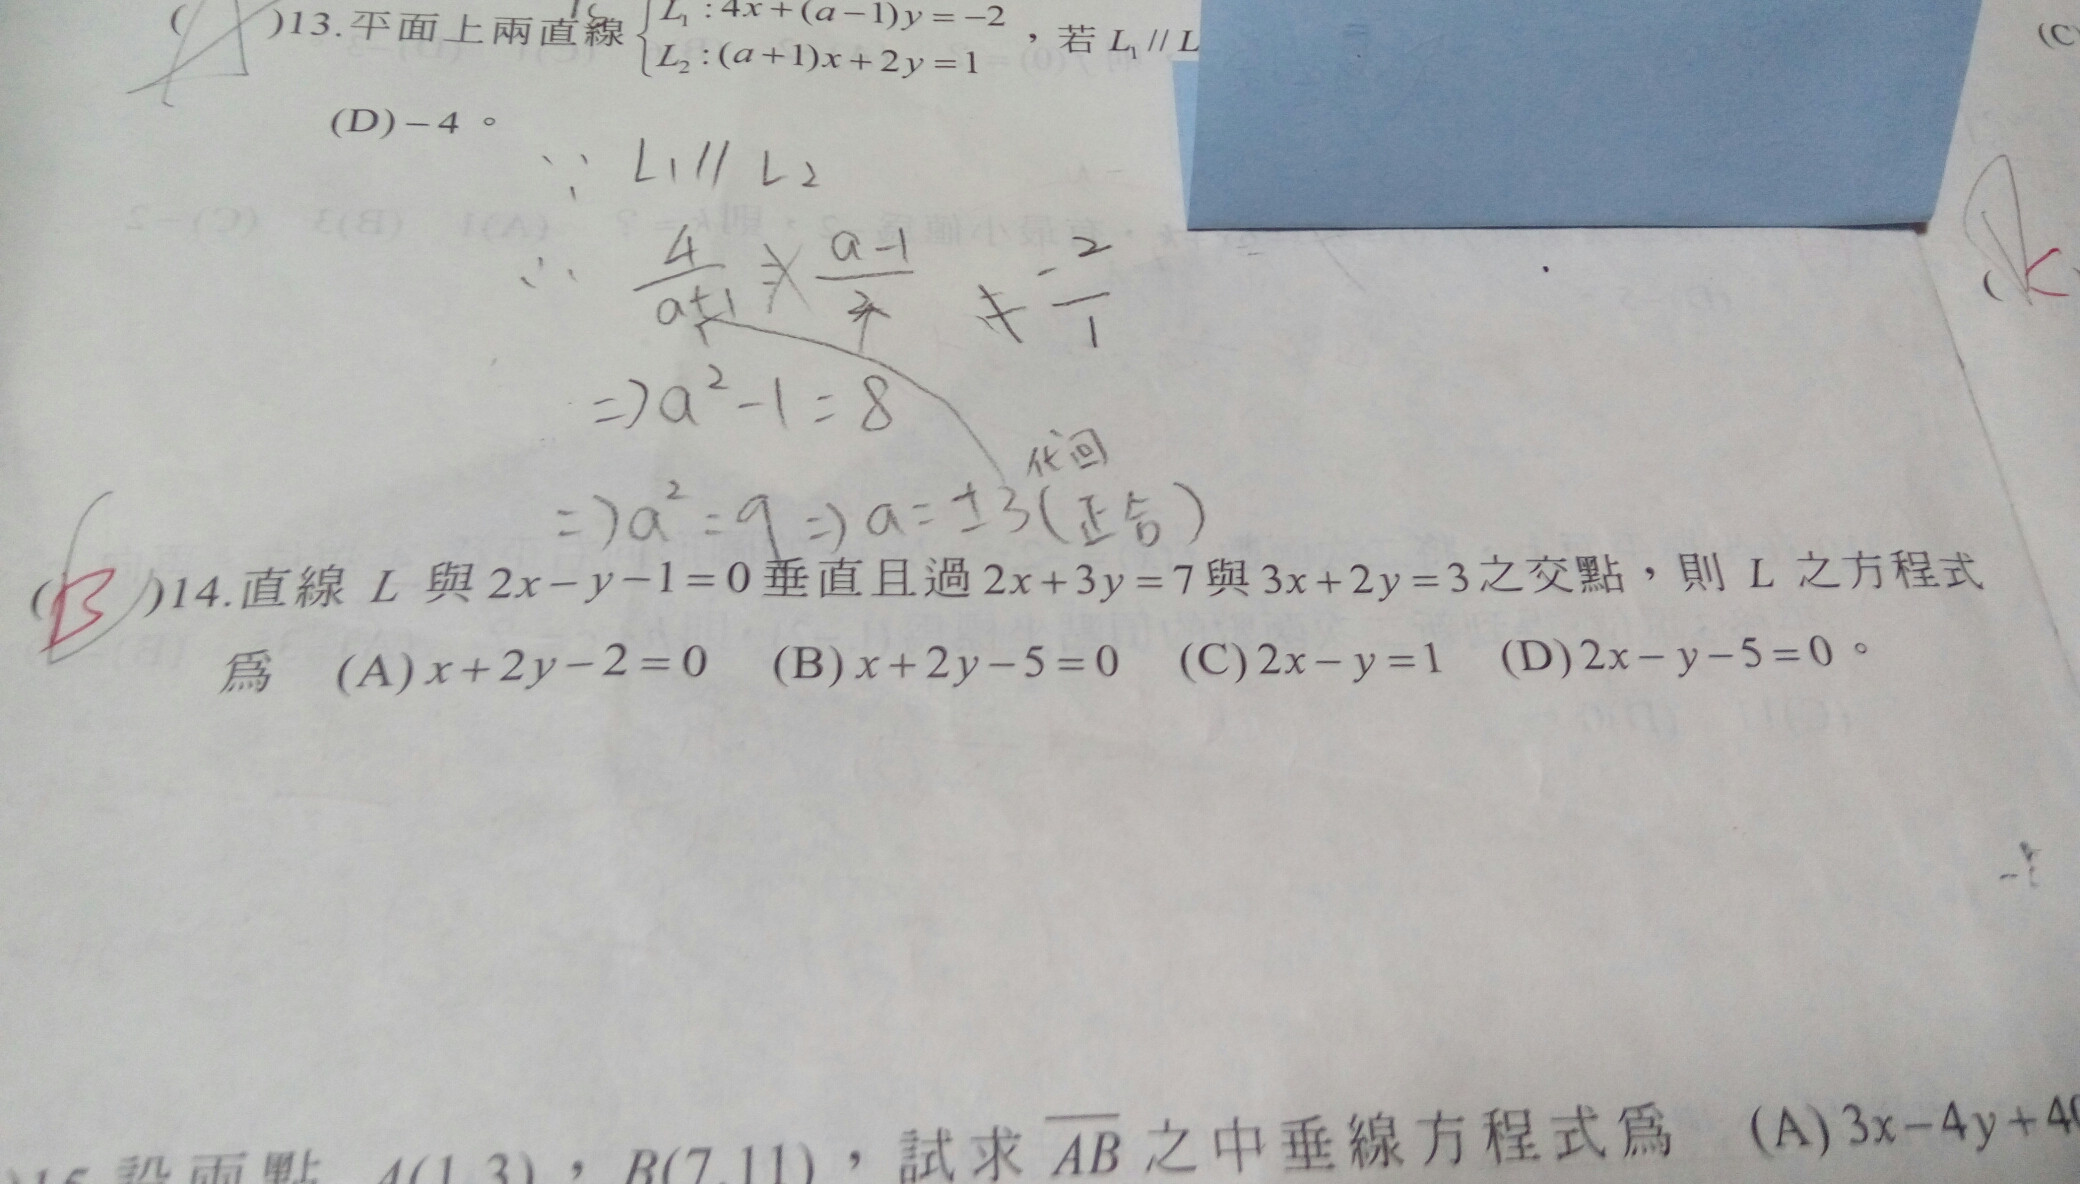 ( A )13.平面上兩直線 { L₁:4x+(a−1)y=−2
L₂:(a+1)x+2y=1 ,若 L₁//L
(D)−4。
∵ L₁//L₂
∴ 4/(a+1) = (a-1)/2 ≠ -2/1
=>a²-1=8
代回
=>a²=9=>a=±3(正合)
(B)14.直線 L 與2x−y−1=0垂直且過2x+3y=7與3x+2y=3之交點,則 L 之方程式
爲 (A)x+2y−2=0 (B)x+2y−5=0 (C)2x−y=1 (D)2x−y−5=0。
)15.設兩點 A(1,3),B(7,11),試求 AB 之中垂線方程式爲 (A)3x−4y+4
(C
(